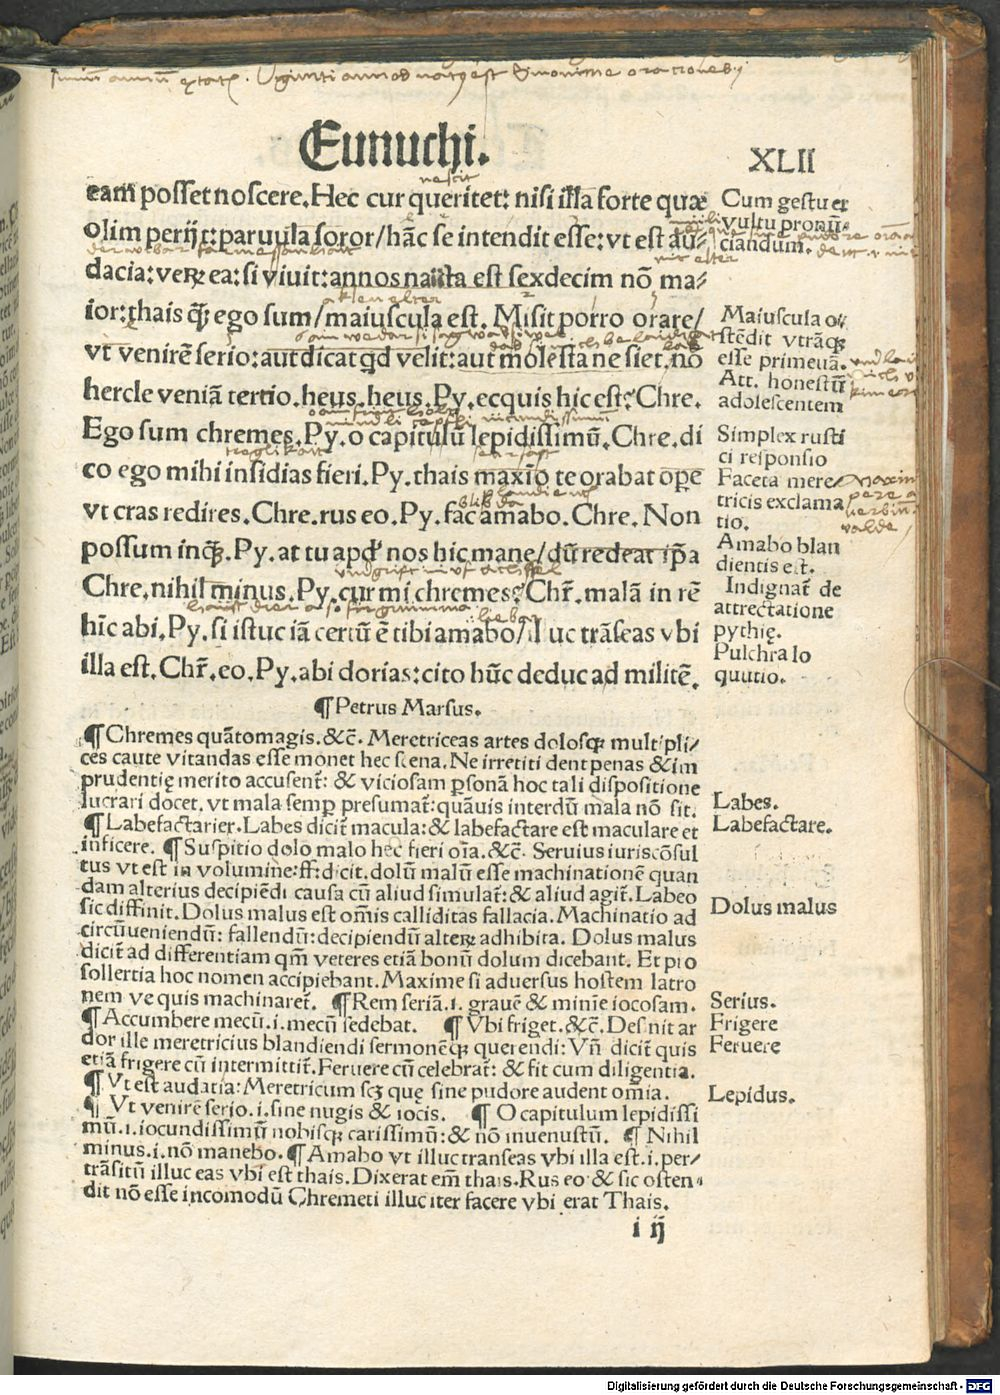 Eunuchi.
XLII
eam posset noscere. Hec cur queritet: nisi illa forte quæ
olim perijt: paruula soror/hãc se intendit esse: vt est au⸗
dacia: veꝝ ea: si viuit: annos nata est sexdecim nõ ma⸗
ior: thais q̃ꝫ ego sum/maiuscula est. Misit porro orare/
vt venirẽ serio: aut dicat qd velit: aut molesta ne siet. nõ
hercle veniã tertio. heus. heus. Py. ecquis hic est? Chre.
Ego sum chremes. Py. o capitulũ lepidissimũ. Chre. di
co ego mihi insidias fieri. Py. thais maxĩo te orabat oꝑe
vt cras redires. Chre. rus eo. Py. fac amabo. Chre. Non
possum inq̃ꝫ. Py. at tu apd̕ nos hic mane/dũ redeat ip̃a
Chre. nihil minus. Py. cur mi chremes? Chr̃. malã in rẽ
hĩc abi. Py. si istuc iã certũ ẽ tibi amabo/illuc trãseas vbi
illa est. Chr̃. eo. Py. abi dorias: cito hũc deduc ad militẽ.
Cum gestu et
vultu pronũ⸗
ciandum.
Maiuscula o⸗
stẽdit vtrãqꝫ
esse primeuã.
Att. honestũ
adolescentem
Simplex rusti
ci responsio
Faceta mere⸗
tricis exclama
tio.
Amabo blan
dientis est.
Indignat̃ de
attrectatione
pythię.
Pulchra lo
quutio.
¶ Petrus Marsus.
¶ Chremes quãtomagis. &c̃. Meretriceas artes dolosqꝫ multipli⸗
ces caute vitandas esse monet hec scena. Ne irretiti dent penas & im
prudentię merito accusent̃: & viciosam ꝑsonã hoc tali dispositione
lucrari docet. vt mala semꝑ presumat̃: quãuis interdũ mala nõ sit.
¶ Labefactarier. Labes dicit̃ macula: & labefactare est maculare et
inficere. ¶ Suspitio dolo malo hec fieri oĩa. &c̃. Seruius iuriscõsul
tus vt est in volumine: ff: dicit. dolũ malũ esse machinationẽ quan
dam alterius decipiẽdi causa cũ aliud simulat̃: & aliud agit̃. Labeo
sic diffinit. Dolus malus est om̃is calliditas fallacia. Machinatio ad
circũueniendũ: fallendũ: decipiendũ alteꝝ adhibita. Dolus malus
dicit̃ ad differentiam qm̃ veteres etiã bonũ dolum dicebant. Et pro
sollertia hoc nomen accipiebant. Maxime si aduersus hostem latro
nem ve quis machinaret̃. ¶ Rem seriã. i. grauẽ & minĩe iocosam.
¶ Accumbere mecũ. i. mecũ sedebat. ¶ Vbi friget. &c̃. Desinit ar
dor ille meretricius blandiendi sermonẽqꝫ querendi: Vñ dicit̃ quis
etiã frigere cũ intermittit̃. Feruere cũ celebrat̃: & fit cum diligentia.
¶ Vt est audatia: Meretricum scꝫ quę sine pudore audent om̃ia.
¶ Vt venirẽ serio. i. sine nugis & iocis. ¶ O capitulum lepidissi
mũ. i. iocundissimũ nobisqꝫ carissimũ: & nõ inuenustũ. ¶ Nihil
minus. i. nõ manebo. ¶ Amabo vt illuc transeas vbi illa est. i. per⸗
trãsitũ illuc eas vbi est thais. Dixerat em̃ thais. Rus eo & sic osten⸗
dit nõ esse incomodũ Chremeti illuc iter facere vbi erat Thais.
Labes.
Labefactare.
Dolus malus
Serius.
Frigere
Feruere
Lepidus.
i ij
Digitalisierung gefördert durch die Deutsche Forschungsgemeinschaft - DFG